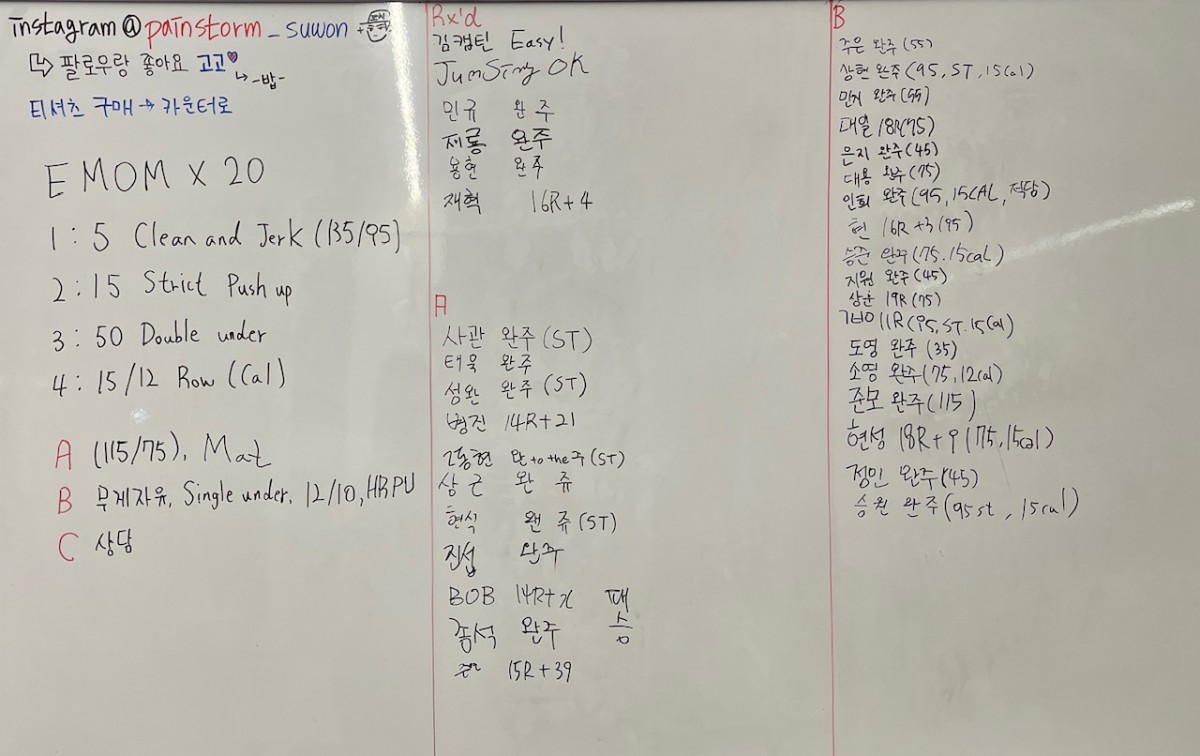 instagram@painstorm_suwon
팔로우랑 좋아요 고고
-밥-
티셔츠 구매 → 카운터로
EMOM X 20
1 : 5 Clean and Jerk (135/95)
2 : 15 Strict Push up
3 : 50 Double under
4 : 15/12 Row (Cal)
A (115/75), Mat
B 무게자유, Single under, 12/10, HRPU
C 상담
Rx'd
김캡틴 Easy!
OK
민규 완주
제롱 완주
용현 완주
재혁 16R+4
A
사관 완주 (ST)
태욱 완주
성완 완주 (ST)
병진 14R+21
동현 완 to the 주 (ST)
상근 완 쥬
현석 왠 쥬 (ST)
진섭 완주
BOB 14R+x
종석 완주
15R+39
B
주은 완주 (55)
상현 완주 (95, ST, 15Cal)
민지 완주 (55)
대일 18R(75)
은지 완주 (45)
대용 완주 (75)
인회 완주 (95, 15CAL, 적당)
현 16R+3 (95)
승준 완주 (75. 15cal)
지원 완주 (45)
상은 19R (75)
11R (95, ST. 15Cal)
도영 완주 (35)
소영 완주 (75, 12cal)
준모 완주 (115)
현성 18R+9 (75, 15cal)
정민 완주 (45)
승원 완주 (95st, 15cal)